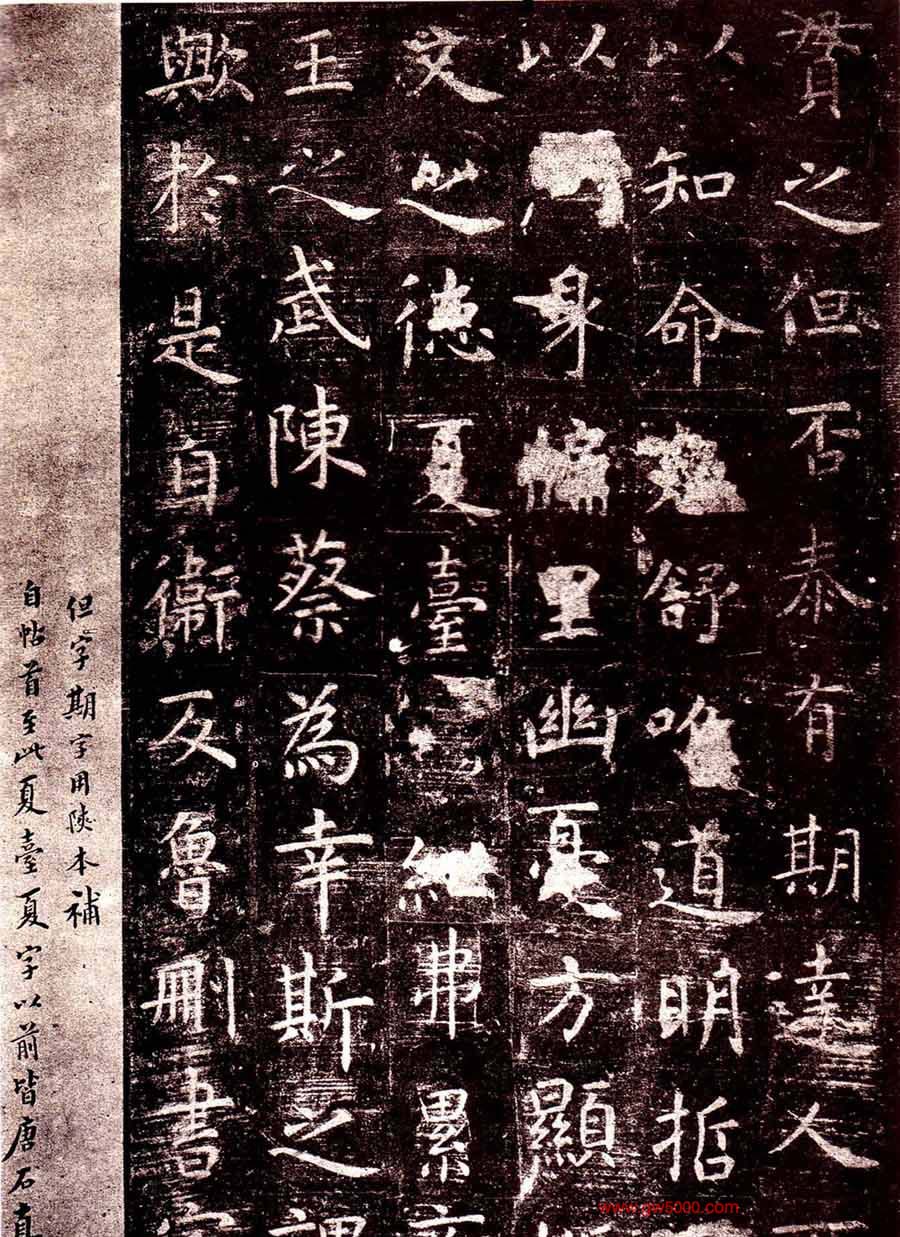 賛之但否泰有期達人
以知命卷舒唯道明哲
以身牖里幽憂方顯
文之德夏臺紲弗累商
王之武陳蔡為幸斯之謂
歟於是自衛反魯刪書定
但字期字用陝本補
自帖首至此夏臺夏字以前皆唐石真
www.gw5000.com